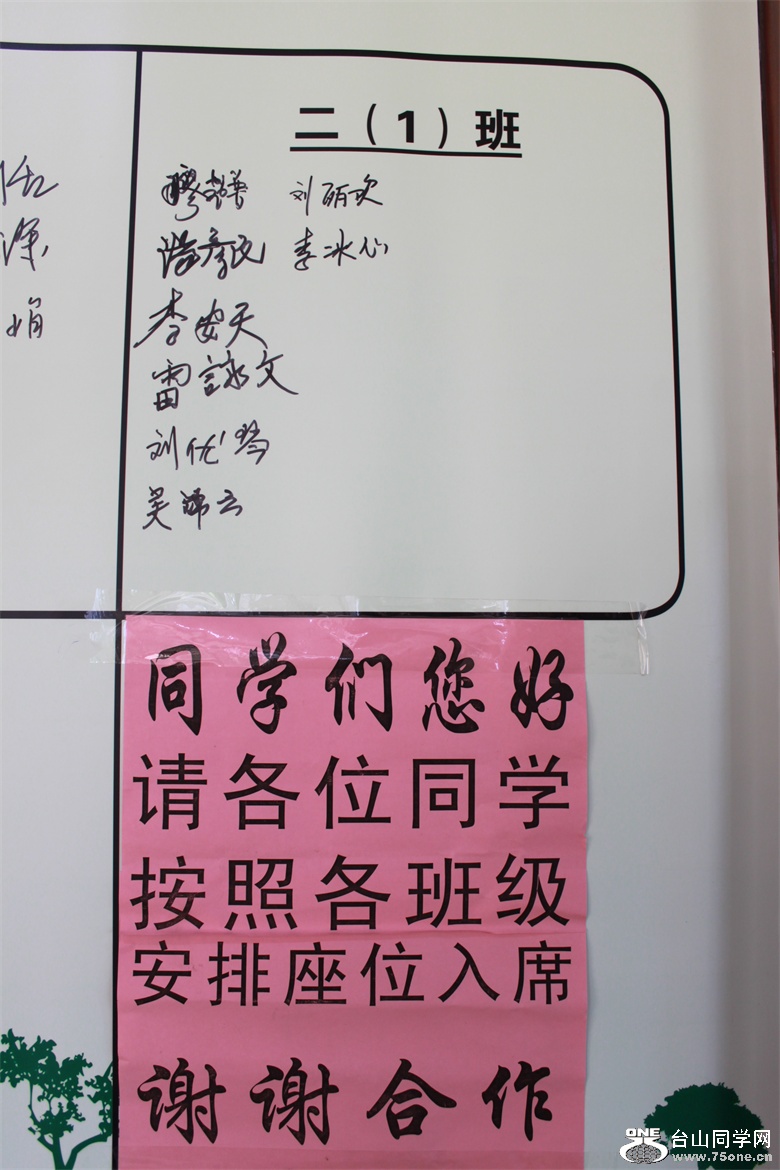 二（1）班
刘丽欢
李冰心
李安天
雷詠文
刘优琴
娟
同学们您好
请各位同学
按照各班级
安排座位入席
谢谢合作
ONE
台山同学网
www.75one.cn